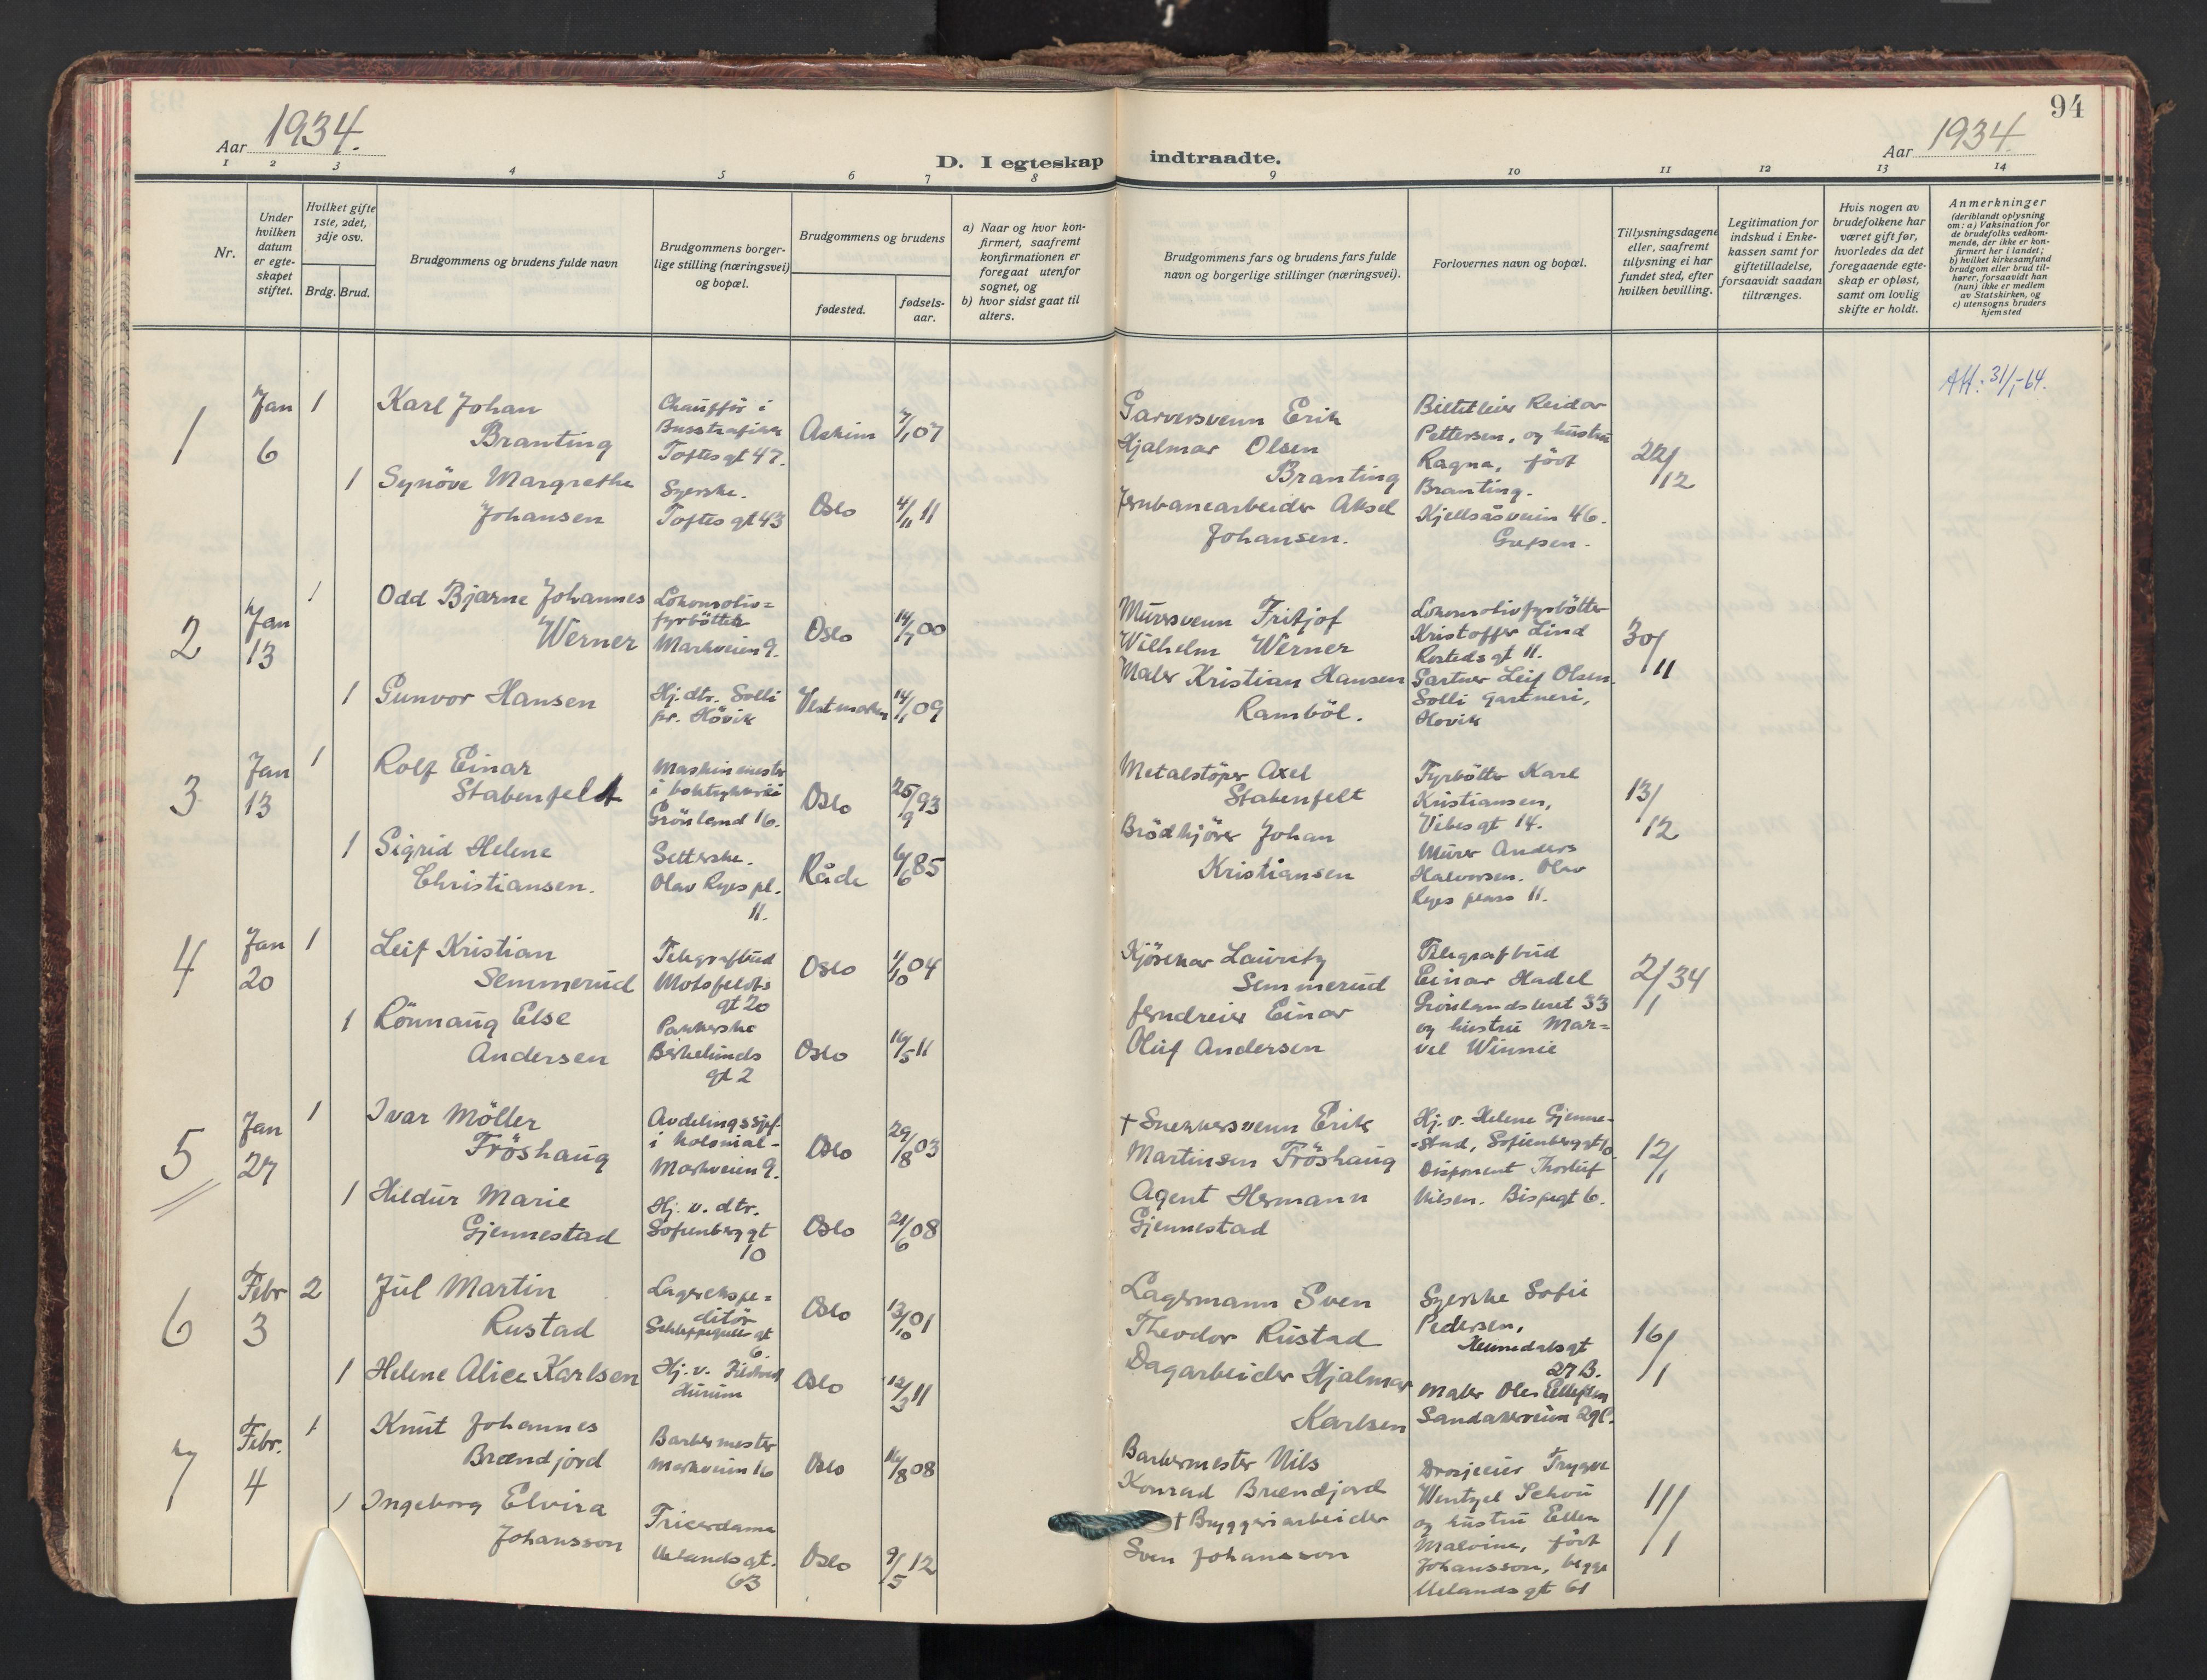 94
Aar 1934.
Aar 1934.
D. I egteskap indtraadte.
1 2 3 4 5 6 7 8 9 10 11 12 13 14
Nr.
Under hvilken datum er egte-skapet stiftet.
Hvilket gifte 1ste, 2det, 3dje osv.
Brdg. Brud.
Brudgommens og brudens fulde navn
Brudgommens borger-lige stilling (næringsvei) og bopæl.
Brudgommens og brudens
fødested.
fødsels-aar.
a) Naar og hvor kon-firmert, saafremt konfirmationen er foregaat utenfor sognet, og
b) hvor sidst gaat til alters.
Brudgommens fars og brudens fars fulde navn og borgerlige stillinger (næringsvei).
Forlovernes navn og bopæl.
Tillysningsdagene eller, saafremt tillysning ei har fundet sted, efter hvilken bevilling.
Legitimation for indskud i Enke-kassen samt for giftetilladelse, forsaavidt saadan tiltrænges.
Hvis nogen av brudefolkene har været gift før, hvorledes da det foregaaende egte-skap er opløst, samt om lovlig skifte er holdt.
Anmerkninger
(deriblandt oplysning om: a) Vaksination for de brudefolks vedkom-mende, der ikke er kon-firmert her i landet; b) hvilket kirkesamfund brudgom eller brud til-hører, forsaavidt han (hun) ikke er medlem av Statskirken, og c) utensogns bruders hjemsted
Att: 31/1-64.
1
Jan 6
1
Karl Johan
Branting
Chauffør i
Busstrafikk
Toftes gt 47.
Askim
7/1 07
Garversvenn Erik
Hjalmar Olsen
Branting
Reidar
Pettersen, og hustru
Ragna, født
Branting.
Kjellsåsveien 46.
Grefsen.
22/12
1
Synöve Margrethe
Johansen
Syerske.
Toftes gt 43
Oslo
4/11 11
Jernbanearbeider Aksel
Johansen.
2
Jan 13
1
Odd Bjarne Johannes
Werner
Lokomotiv=
fyrbötter
Markveien 9.
Oslo
14/7 00
Murersvenn Fritjof
Wilhelm Werner
Lokomotivfyrbötter
Kristoffer Lind
Rosteds gt 11.
30/11
1
Gunvor Hansen
Hj. dtr. Solli
pr. Hövik
Vestmarken
14/1 09
Maler Kristian Hansen
Ramböl.
Gartner Leif Olsen.
Solli gartneri,
Hovik
3
Jan 13
1
Rolf Einar
Stabenfeldt
Maskinmester
i boktrykkeri
Grönland 16.
Oslo
25/9 93
Metalstöper Axel
Stabenfelt
Fyrbötter Karl
Kristiansen,
Vibes gt 14.
13/12
1
Sigrid Helene
Christiansen.
Setterske.
Olav Ryes pl.
11.
Råde
6/6 85
Brödkjörer Johan
Kristiansen
Murer Anders
Halvorsen. Olav
Ryes plass 11.
4
Jan 20
1
Leif Kristian
Semmerud
Telegrafbud
Motzfeldts
gt 20
Oslo
1/10 04
Kjörekar Lauritz
Semmerud
Telegrafbud
Einar Hadel
Grönlandsleret 33
og hustru Mar=
vel Winnie
2/1 34
1
Rönnaug Else
Andersen
Pakkerske
Birkelunds
gt 2
Oslo
16/5 11
Jerndreier Einar
Oluf Andersen
5
Jan 27
1
Ivar Möller
Fröshaug
Avdelingssjef
i kolonial-
Markveien 9.
Oslo
29/8 03
† Snekkersvenn Erik
Martinsen Fröshaug
Hj. v. Helene Gjenne-
-stad, Sofienberg gt 10
Disponent Thorleif
Nilsen. Bispegt 6.
12/1
1
Hildur Marie
Gjennestad
Hj. v. dtr.
Sofienberg gt
10
Oslo
21/6 08
Agent Hermann
Gjennestad
6
Febr 3
2
Jul Martin
Rustad
Lagerekspe=
ditör
Schleppegrells gt
6.
Oslo
13/10 01
Lagermann Sven
Theodor Rustad
Syerske Sofie
Pedersen,
Heimdalsgt
27 B.
16/1
1
Helene Alice Karlsen
Hj. v.
Hurum
Oslo
12/3 11
Dagarbeider Hjalmar
Karlsen
Maler Oles Ellefsen
Sandakerveien 29 C.
7
Febr. 4
1
Knut Johannes
Brændjord
Barbermester
Markveien 16
Oslo
16/8 08
Barbermester Nils
Konrad Brændjord
Drosjeeier Trygve
Wentzel Schou
og hustru Ellen
Malvine, født
Johansson, begge
Uelands gt 61
11/1
1
Ingeborg Elvira
Johansson
Friserdame
Uelands gt.
63
Oslo
9/5 12
† Bryggeriarbeider
Sven Johansson